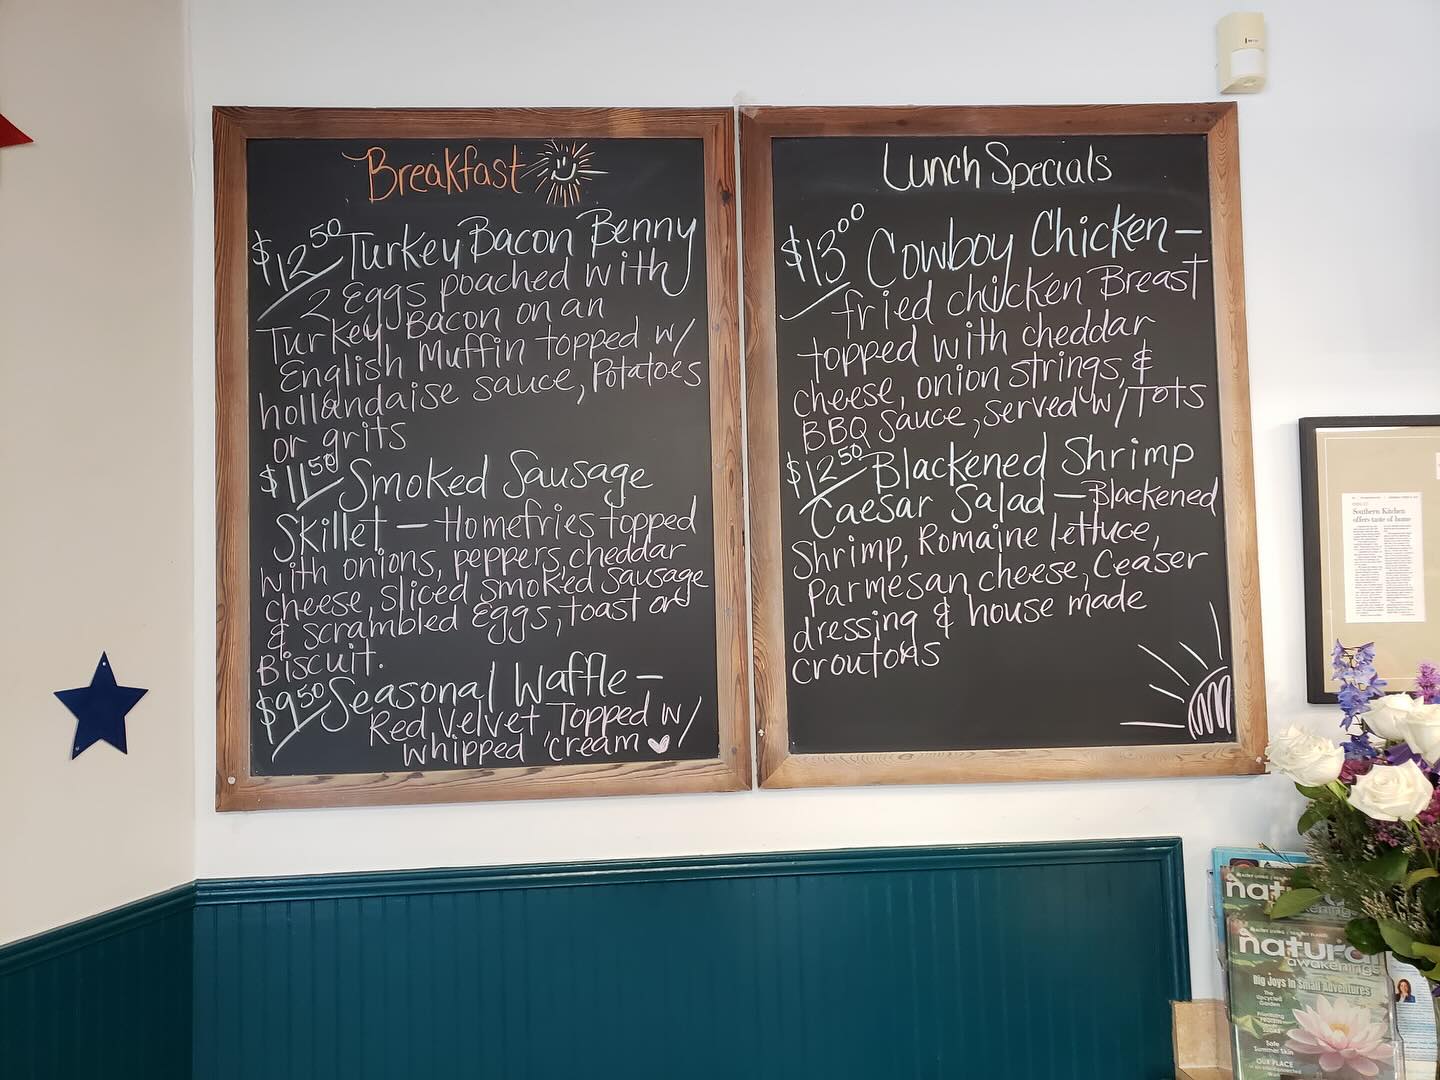 Breakfast
$12.50 Turkey Bacon Benny
2 Eggs poached with
Turkey Bacon on an
English Muffin topped w/
hollandaise sauce, Potatoes
or grits
$11.50 Smoked Sausage
Skillet — Homefries topped
with onions, peppers, cheddar
cheese, sliced smoked sausage
& scrambled Eggs, toast or
Biscuit.
$9.50 Seasonal Waffle —
Red Velvet Topped w/
whipped cream
Lunch Specials
$13.00 Cowboy Chicken —
fried chicken Breast
topped with cheddar
cheese, onion strings, &
BBQ Sauce, served w/ Tots
$12.50 Blackened Shrimp
Caesar Salad — Blackened
Shrimp, Romaine lettuce,
Parmesan cheese, Ceaser
dressing & house made
croutons
Southern Kitchen
offers taste of home
natural
awakenings
Big Joys in Small Adventures
The
Upcycled
Garden
Safe
Summer Skin
OUR PLACE